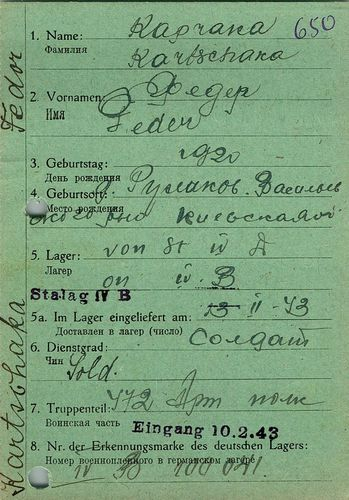 650
1. Name: Карчака
Фамилия Kartschaka
2. Vornamen: Федер
Имя Feder
3. Geburtstag: 1920
День рождения
4. Geburtsort: с. Русаков. Васильев
Место рождения
Киевская об
5. Lager: von St IV
Лагер on IV. B
Stalag IV B
5a. Im Lager eingeliefert am: 13 II-43
Доставлен в лагер (число)
6. Dienstgrad: Солдат
Чин Sold.
7. Truppenteil: 472 Арт полк
Воинская часть
Eingang 10.2.43
8. Nr. der Erkennungsmarke des deutschen Lagers:
Номер военнопленного в германском лагере
IV B
Kartschaka Fedor